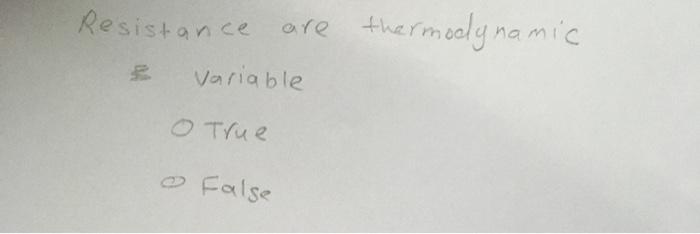 Resistance are thermodynamic
Variable
True
False